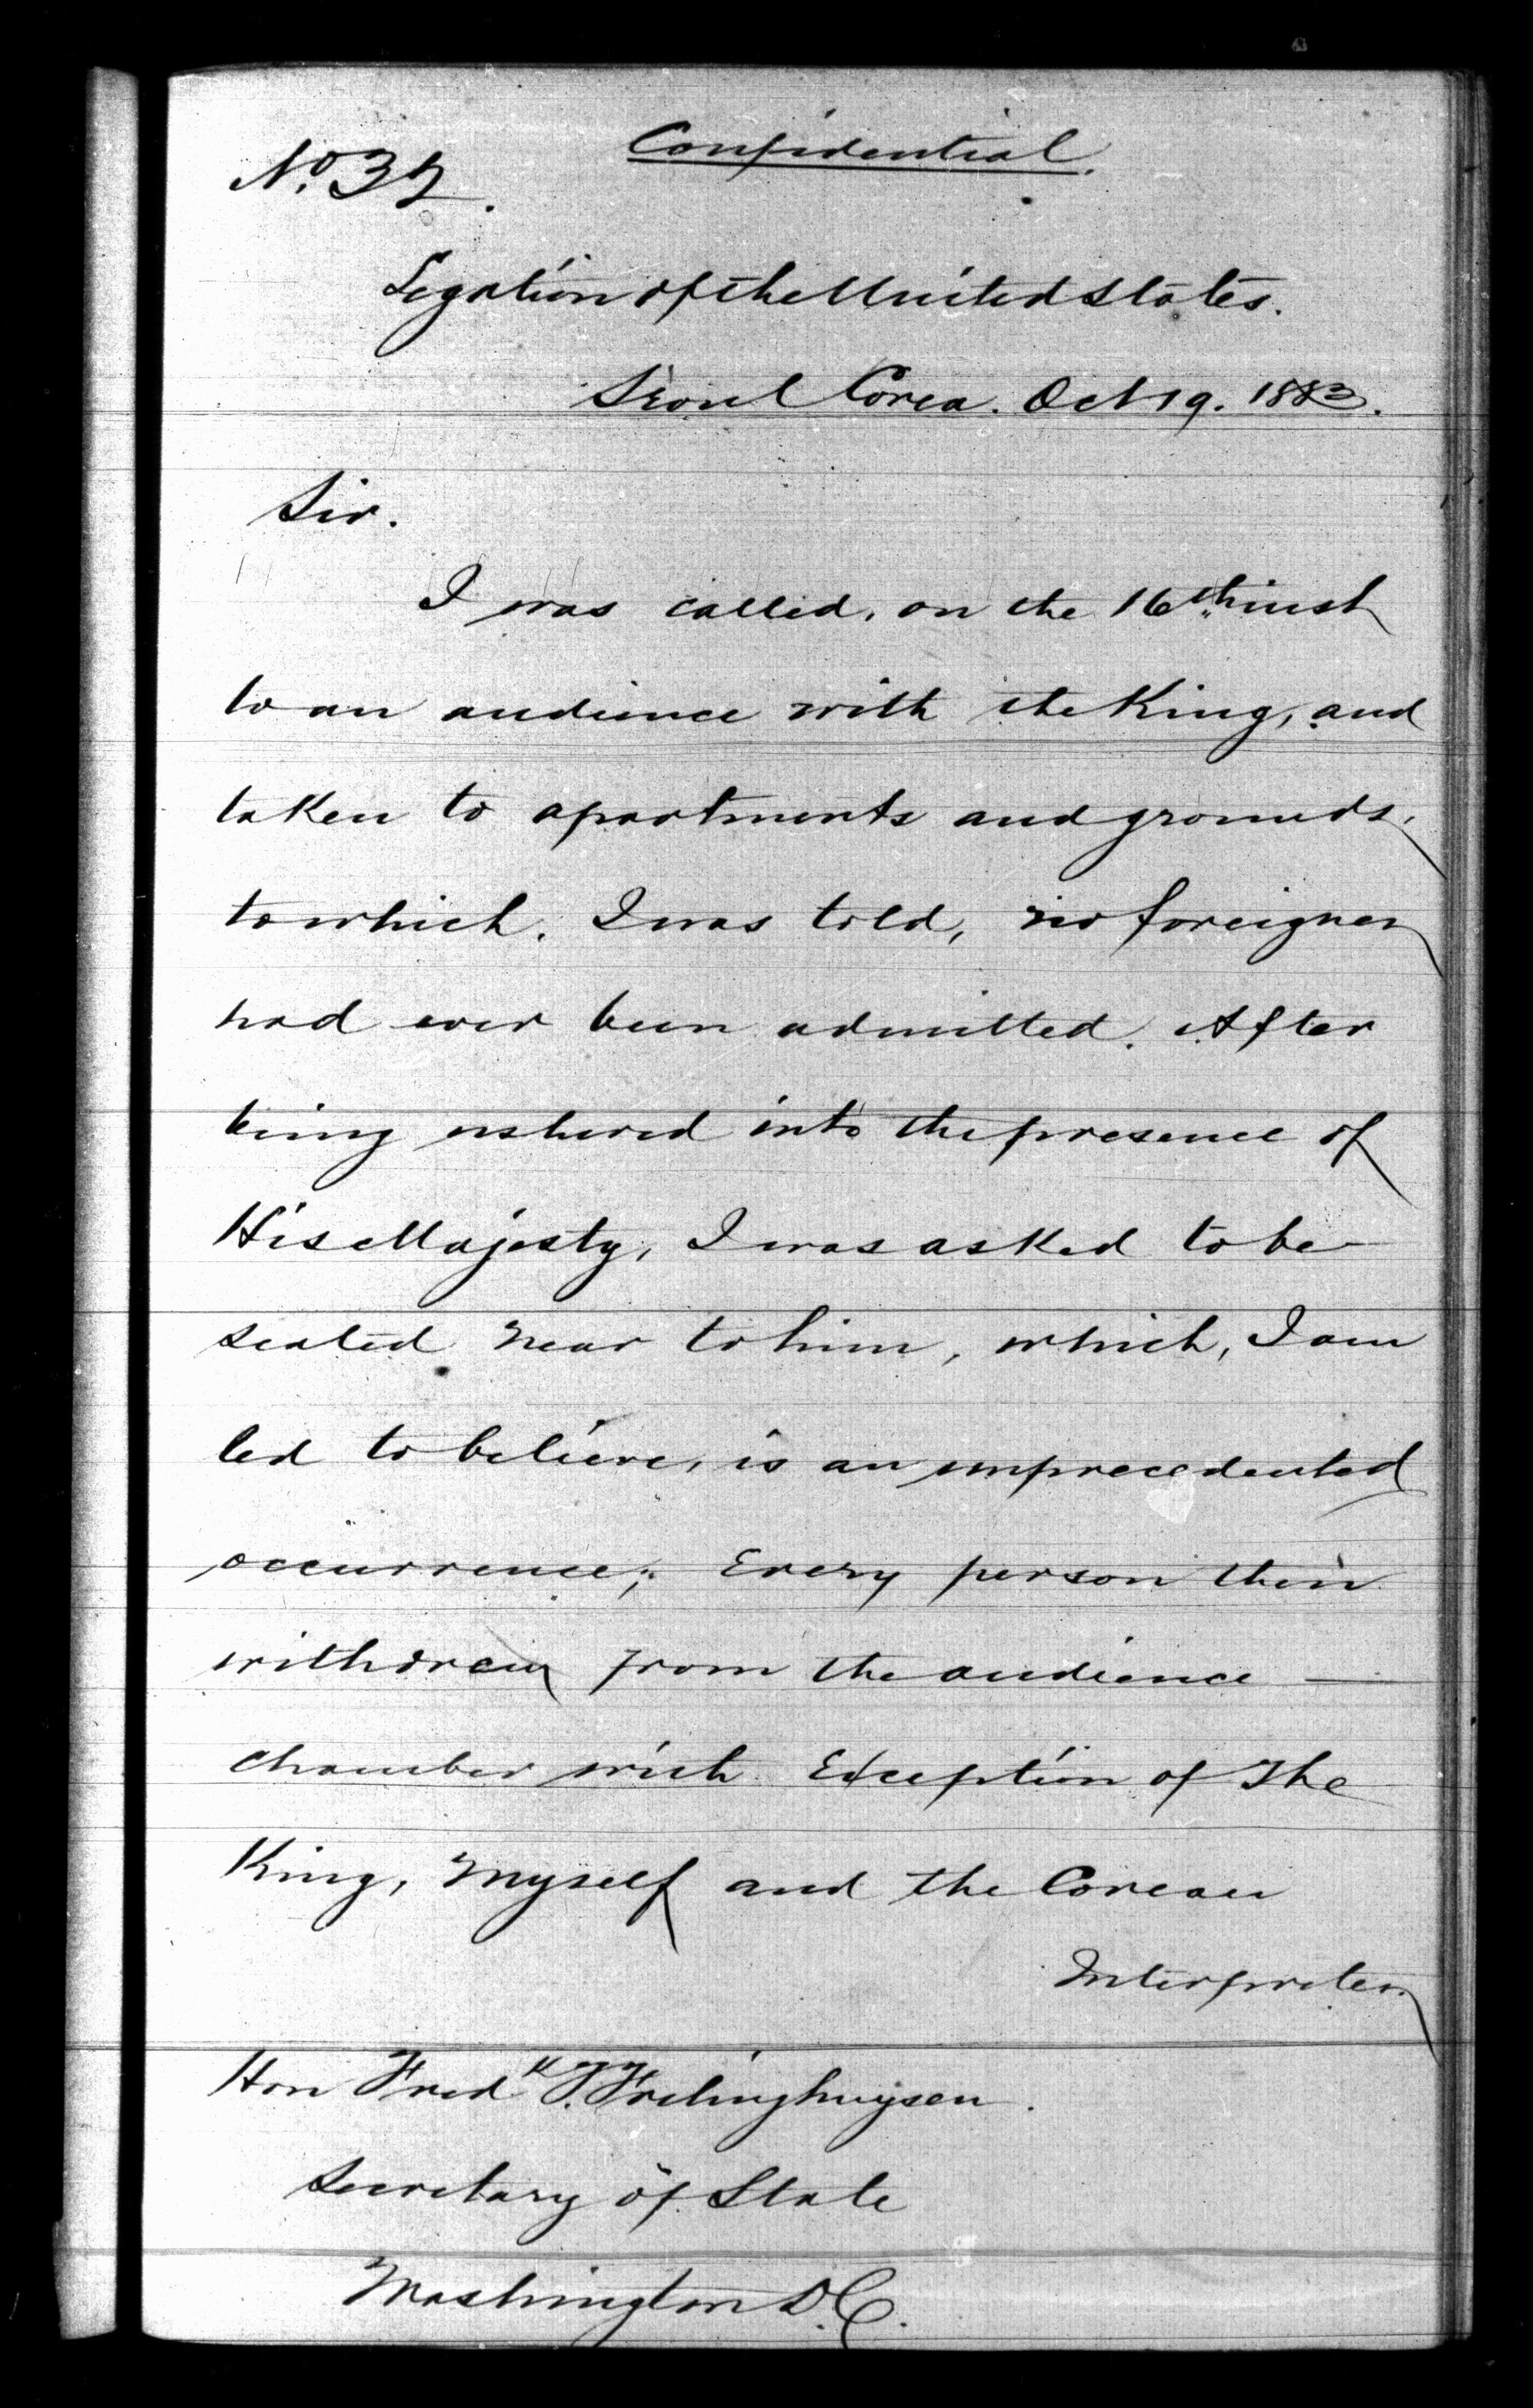 Confidential.
No. 32.
Legation of the United States.
Seoul Corea. Oct 19. 1883.
Sir.
I was called, on the 16th inst
to an audience with the King, and
taken to apartments and grounds,
to which, I was told, no foreigner
had ever been admitted. After
being ushered into the presence of
His Majesty, I was asked to be
seated near to him, which, I am
led to believe, is an unprecedented
occurrence; Every person then
withdrew from the audience —
chamber with Exception of The
King, myself and the Corean
Interpreter
Hon Fredk T. Frelinghuysen.
Secretary of State
Washington D.C.